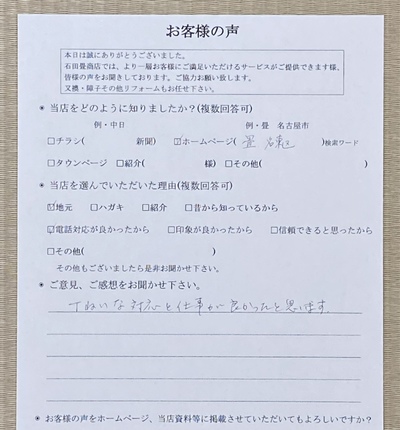 お客様の声
本日は誠にありがとうございました。
石田畳商店では、より一層お客様にご満足いただけるサービスがご提供できます様、
皆様の声をお聞きしております。ご協力お願い致します。
又襖・障子その他リフォームもお任せ下さい。
＊ 当店をどのように知りましたか?(複数回答可)
例・中日 例・畳 名古屋市
□チラシ( 新聞) ☑ホームページ( 畳 )検索ワード
□タウンページ □紹介( 様) □その他( )
＊ 当店を選んでいただいた理由(複数回答可)
☑地元 □ハガキ □紹介 □昔から知っているから
☑電話対応が良かったから □印象が良かったから □信頼できると思ったから
□その他( )
その他もございましたら是非お聞かせ下さい。
＊ ご意見、ご感想をお聞かせ下さい。
丁ねいな対応と仕事が良かったと思います。
＊ お客様の声をホームページ、当店資料等に掲載させていただいてもよろしいですか？